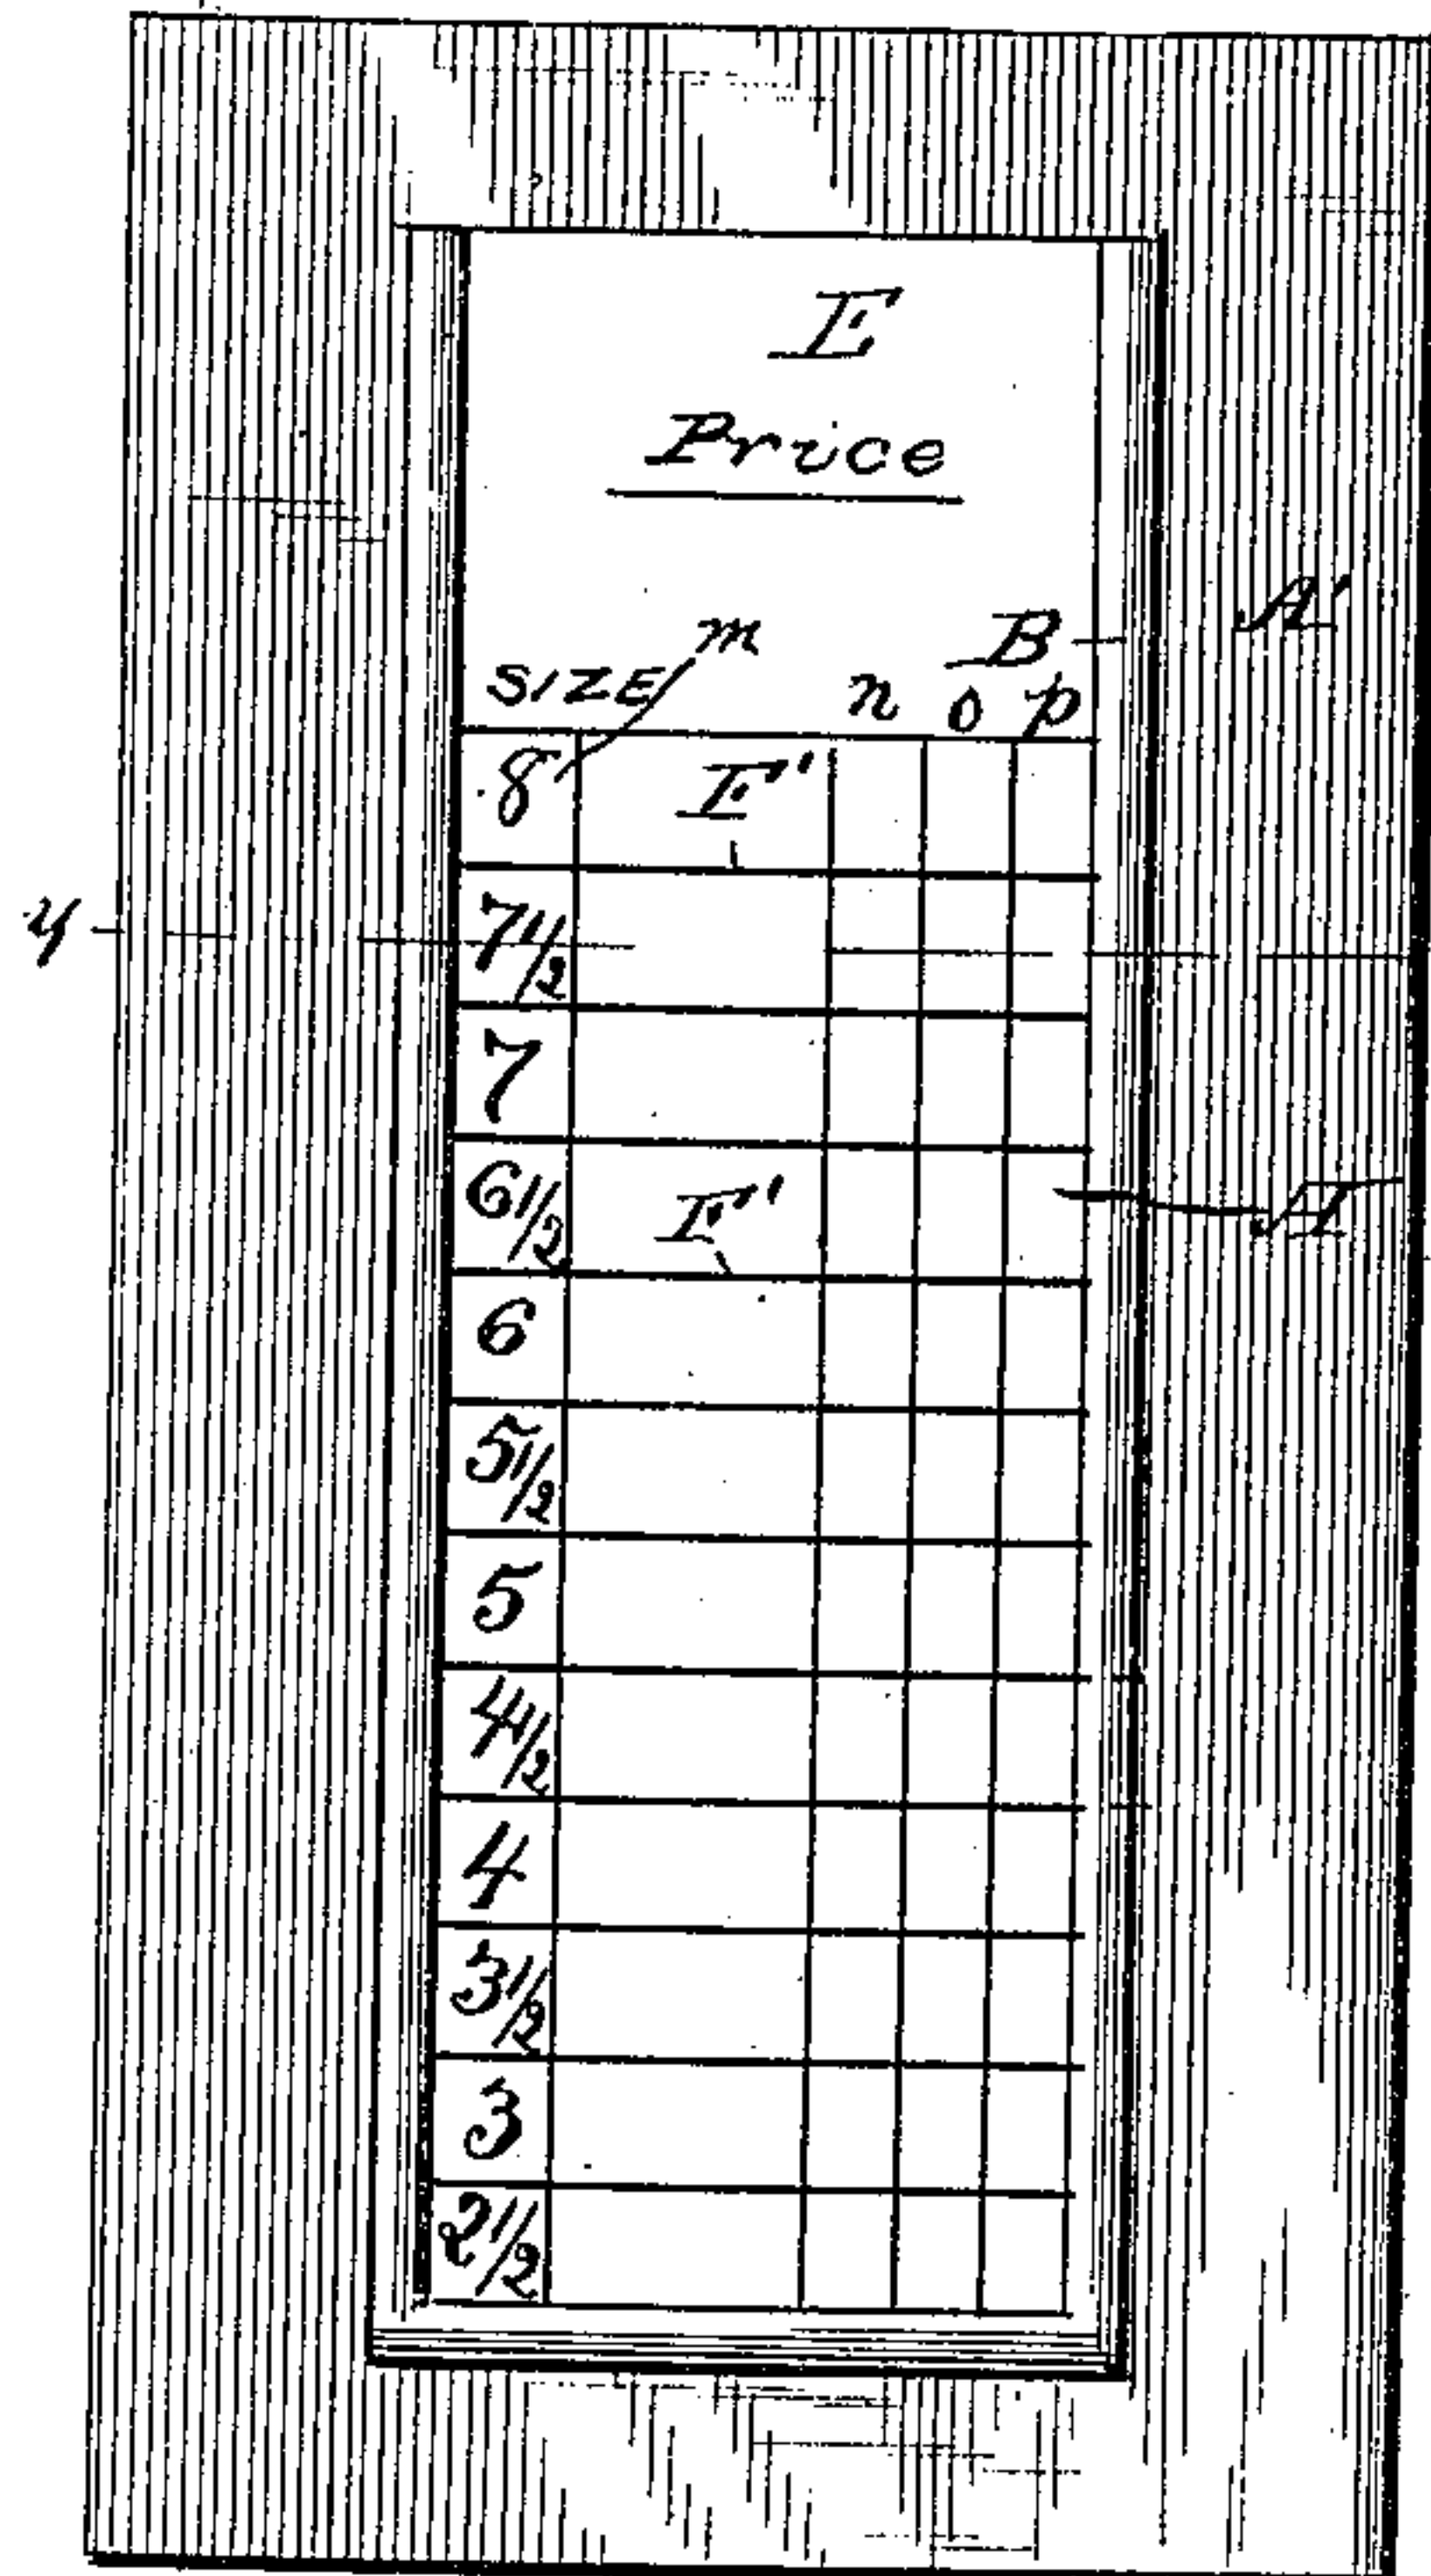 E
Price
A'
m
B
SIZE
n o p
8 E'
y
7 1/2
7
6 1/2 E'
6
5 1/2
5
4 1/2
4
3 1/2
3
2 1/2